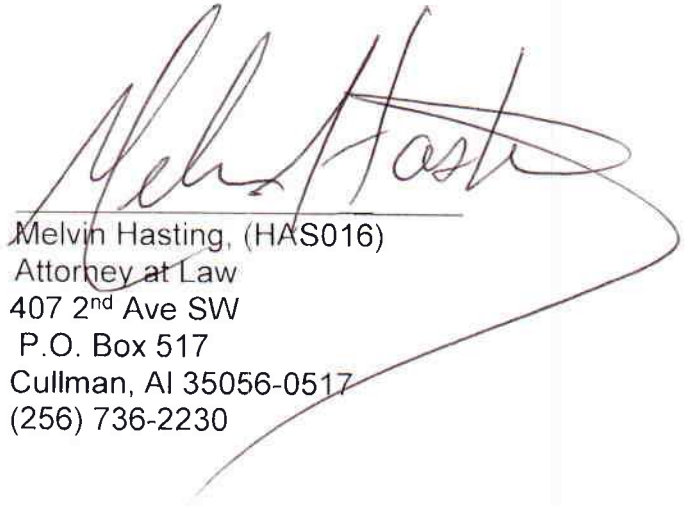 Melvin Hasting
Melvin Hasting, (HAS016)
Attorney at Law
407 2nd Ave SW
P.O. Box 517
Cullman, Al 35056-0517
(256) 736-2230